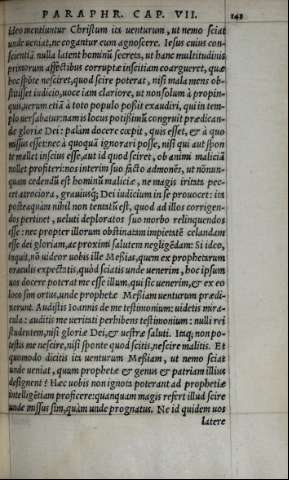 PARAPHR. CAP. VII. 143
ideo mentiuntur Christum ita uenturum, ut nemo sciat
unde ueniat, ne cogantur eum agnoscere. Iesus cuius con-
scientiā nulla latent hominū secreta, ut hanc multitudinis
primorum affectibus corruptæ insciitiam coargueret, quæ
hoc sponte nesciret, quod scire poterat, nisi mala mens ob-
stitisset iudicio, uoce iam clariore, ut non solum à propin-
quis, uerum etiā à toto populo posset exaudiri, qui in tem-
plo uersabatur: nam is locus potissimū congruit prædican-
dæ gloriæ Dei: palàm docere cœpit, quis esset, & à quo
missus esset: nec à quoquā ignorari posse, nisi qui aut spon
te mallet inscius esse, aut id quod sciret, ob animi maliciā
nollet profiteri: nos interim suo facto admonēs, ut nōnun-
quam cedendū est hominū maliciæ, ne magis irritata pec-
cet atrociora, grauiusq; Dei iudicium in se prouocet: ita
posteaquam nihil non tentatū est, quod ad illos corrigen-
dos pertinet, ueluti deploratos suo morbo relinquendos
esse: nec propter illorum obstinatam impietatē celandam
esse dei gloriam, ac proximi salutem negligēdam: Si ideo,
inquit, nō uideor uobis ille Meßias, quem ex prophetarum
oraculis expectatis, quòd sciatis unde uenerim, hoc ipsum
uos docere poterat me esse illum, qui sic uenerim, & ex eo
loco sim ortus, unde prophetæ Meßiam uenturum prædi-
xerunt. Audistis Ioannis de me testimonium: uidetis mira-
cula: auditis me ueritati perhibens testimonium: nulli rei
studentem, nisi gloriæ Dei, & uestræ saluti. Itaq; non po-
testis me nescire, nisi sponte quod scitis, nescire malitis. Et
quomodo dicitis ita uenturum Meßiam, ut nemo sciat
unde ueniat, quum prophetæ & genus & patriam illius
designent? Hæc uobis non ignota poterant ad prophetiæ
intelligētiam proficere: quanquam magis refert illud scire
unde missus sim, quàm unde prognatus. Ne id quidem uos
latere